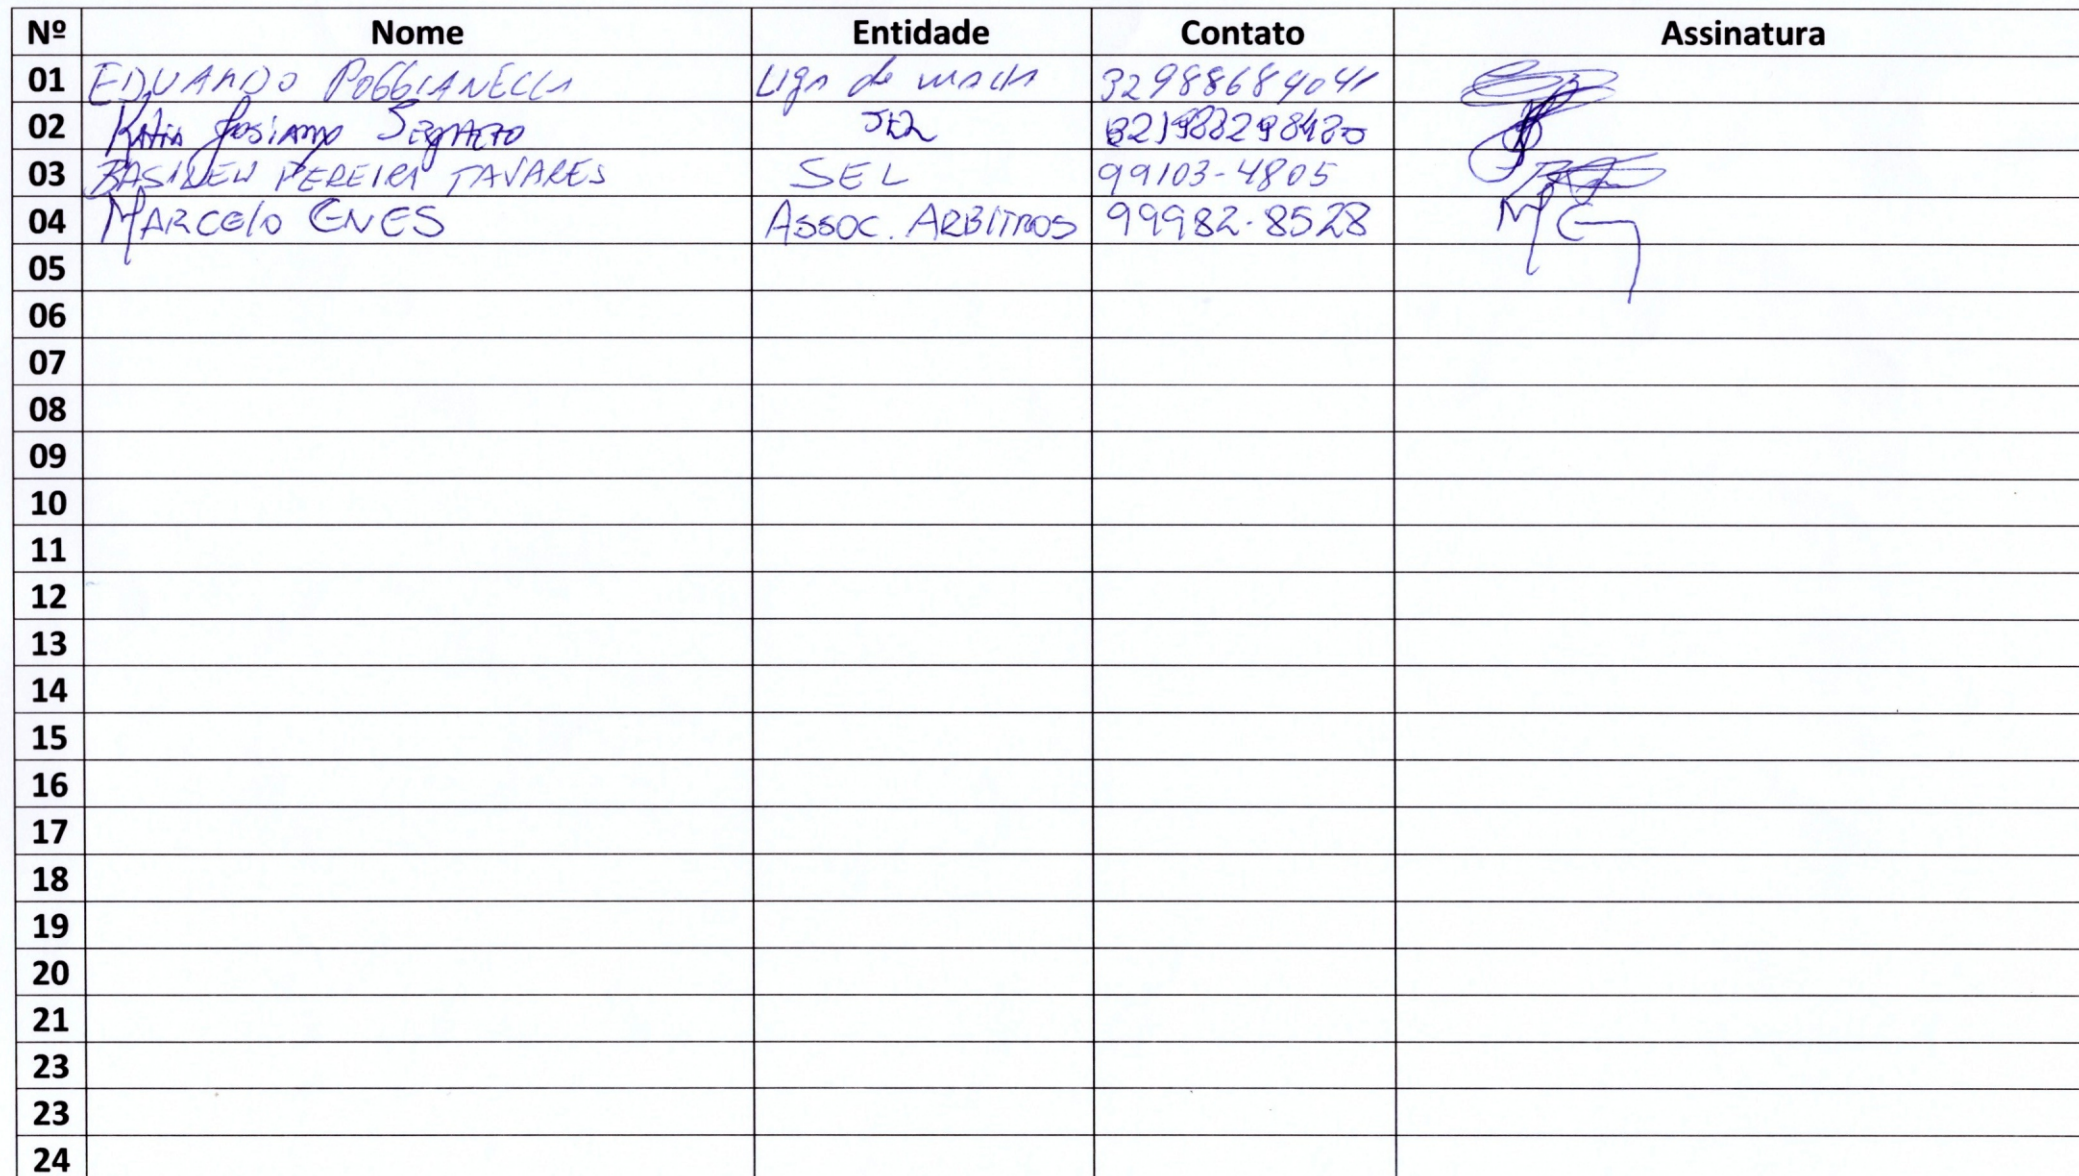 Nº Nome Entidade Contato Assinatura
01 EDUARDO POGGIANELLA Liga de 32988684041
02 Katia Josiane SEL
03 PEREIRA TAVARES SEL 99103-4805
04 MARCElO ENES ASSOC. ARBITROS 99982-8528
05
06
07
08
09
10
11
12
13
14
15
16
17
18
19
20
21
23
23
24